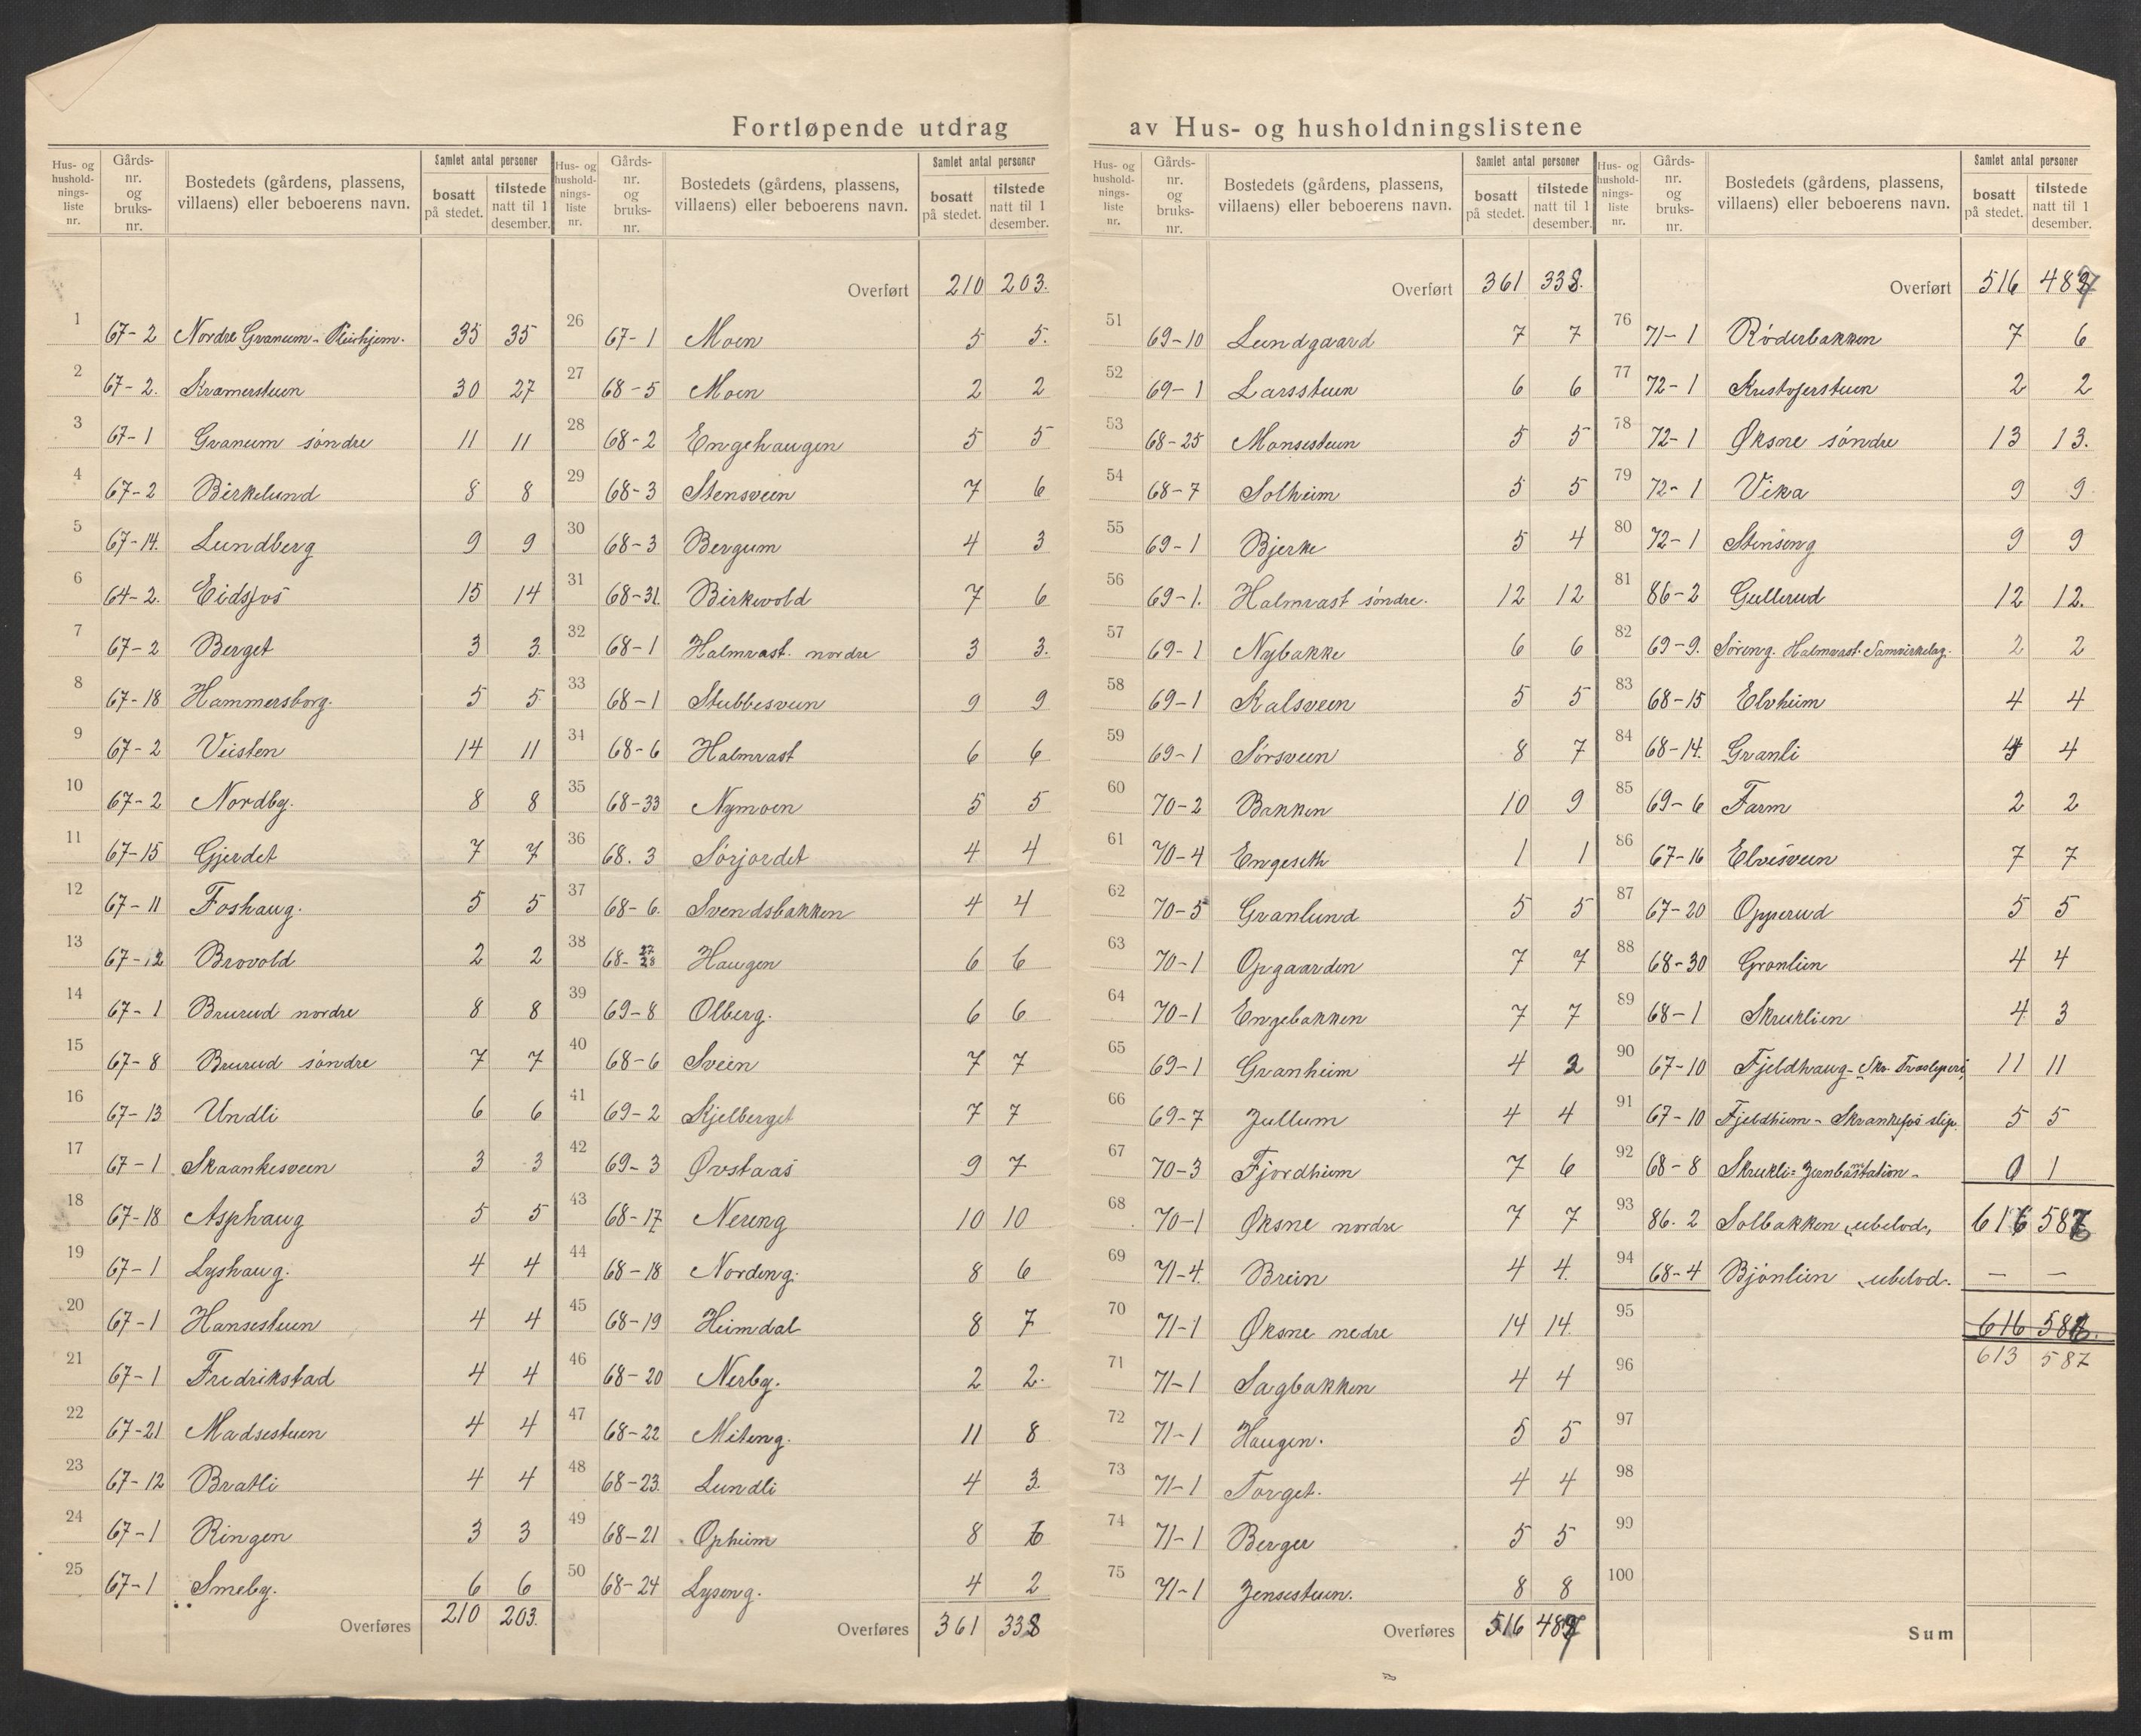 Fortløpende utdrag av Hus- og husholdningslistene
Hus- og hushold- nings- liste nr. | Gårds- nr. og bruks- nr. | Bostedets (gårdens, plassens, villaens) eller beboerens navn. | Samlet antal personer bosatt på stedet. | tilstede natt til 1 desember.
1 67-2 Nordre Granum - Pleiehjem. 35 35
2 67-2. Kramerstuen 30 27
3 67-1 Granum søndre 11 11
4 67-2 Birkelund 8 8
5 67-14. Lundberg 9 9
6 64-2. Eidsfos 15 14
7 67-2 Berget 3 3
8 67-18 Hammersborg. 5 5
9 67-2 Veisten 14 11
10 67-2 Nordby. 8 8
11 67-15 Gjerdet 7 7
12 67-11 Foshaug. 5 5
13 67-12 Brovold 2 2
14 67-1 Brurud nordre 8 8
15 67-8 Brurud søndre 7 7
16 67-13 Undli 6 6
17 67-1 Skaankesveen 3 3
18 67-18 Asphaug 5 5
19 67-1 Lyshaug. 4 4
20 67-1 Hansestuen 4 4
21 67-1 Fredrikstad 4 4
22 67-21 Madsestuen 4 4
23 67-12 Bratli 4 4
24 67-1 Ringen 3 3
25 67-1 Smeby. 6 6
Overføres 210 203.
Hus- og hushold- nings- liste nr. | Gårds- nr. og bruks- nr. | Bostedets (gårdens, plassens, villaens) eller beboerens navn. | Samlet antal personer bosatt på stedet. | tilstede natt til 1 desember.
Overført 210 203.
26 67-1 Moen 5 5.
27 68-5 Moen 2 2
28 68-2 Engehaugen 5 5
29 68-3 Stensveen 7 6
30 68-3 Bergum 4 3
31 68-31. Birkevold 7 6
32 68-1 Halmrast. nordre 3 3.
33 68-1 Stubbesveen 9 9
34 68-6 Halmrast 6 6
35 68-33 Nymoen 5 5
36 68. 3 Sørjordet 4 4
37 68-6. Svendsbakken 4 4
38 68- 27 28 Haugen 6 6
39 69-8 Olberg. 6 6
40 68-6 Sveen 7 7
41 69-2 Kjelberget 7 7
42 69-3 Øvstaas 9 7
43 68-17 Nereng 10 10
44 68-18 Nordeng. 8 6
45 68-19 Heimdal 8 7
46 68-20 Nerby. 2 2.
47 68-22 Miteng. 11 8
48 68-23. Lundli 4 3
49 68-21 Opheim 8 6
50 68-24 Lyseng. 4 2
Overføres 361 338
Hus- og hushold- nings- liste nr. | Gårds- nr. og bruks- nr. | Bostedets (gårdens, plassens, villaens) eller beboerens navn. | Samlet antal personer bosatt på stedet. | tilstede natt til 1 desember.
Overført 361 338.
51 69-10 Lundgaard 7 7
52 69-1 Larsstuen 6 6
53 68-25 Monsestuen 5 5
54 68-7 Solheim 5 5
55 69-1 Bjerke 5 4
56 69-1. Halmrast søndre. 12 12
57 69-1 Nybakke 6 6
58 69-1 Kalsveen 5 5
59 69-1 Sørsveen 8 7
60 70-2 Bakken 10 9
61 70-4 Engeseth 1 1
62 70-5 Granlund 5 5
63 70-1 Opgaarden 7 7
64 70-1 Engebakken 7 7
65 69-1 Granheim 4 2
66 69-7 Jullum 4 4
67 70-3 Fjordheim 7 6
68 70-1 Øksne nordre 7 7
69 71-4. Breien 4 4.
70 71-1 Øksne nedre 14 14.
71 71-1 Sagbakken 4 4
72 71-1 Haugen. 5 5
73 71-1 Torget. 4 4
74 71-1 Berger 5 5
75 71-1 Jensestuen. 8 8
Overføres 516 487
Hus- og hushold- nings- liste nr. | Gårds- nr. og bruks- nr. | Bostedets (gårdens, plassens, villaens) eller beboerens navn. | Samlet antal personer bosatt på stedet. | tilstede natt til 1 desember.
Overført 516 487
76 71-1 Røderbakken 7 6
77 72-1 Kristoferstuen 2 2
78 72-1 Øksne søndre 13 13.
79 72-1 Vika 9 9
80 72-1 Stenseng 9 9
81 86-2 Gullerud 12 12.
82 69-9. Søreng. Halmrast Samvirkelag. 2 2
83 68-15 Elvheim 4 4
84 68-14. Granli 4 4
85 69-6 Farm 2 2
86 67-16 Elvesveen 7 7
87 67-20 Opperud 5 5
88 68-30 Granlien 4 4
89 68-1 Skruklien 4 3
90 67-10 Fjeldhaug - Skr. Træsliperi 11 11
91 67-10 Fjeldheim - Skrankefos slip. 5 5
92 68-8 Skrukli- Jernbanestation - 0 1
93 86. 2 Solbakken ubebod, 616 587
94 68-4 Bjønlien ubebod. — —
95 616 586.
96 613 587
97
98
99
100
Sum